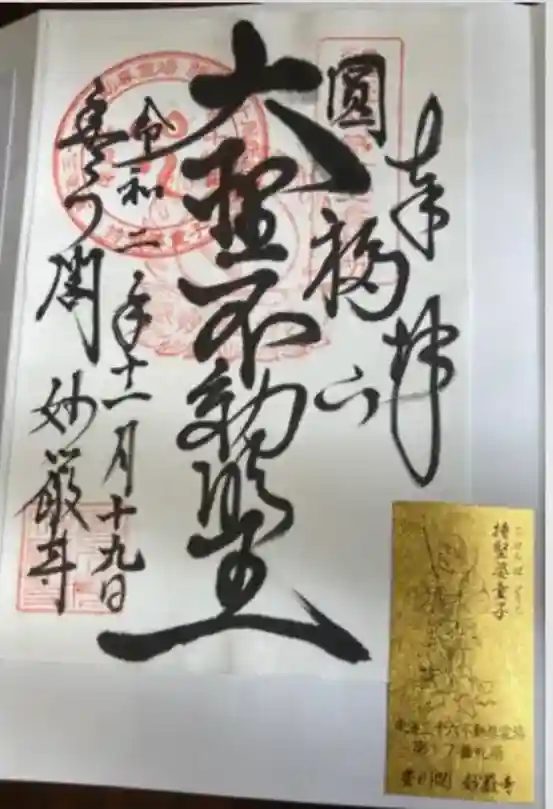 奉拝
圓福山
大聖不動明王
令和二年十一月十九日
豊川閣 妙嚴寺
持堅婆童子
東海三十六不動尊霊場
番札所
豊川閣 妙厳寺